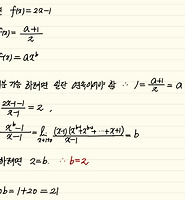 면 f(x)=2x-1
f(x)=\frac{a+1}{2}
f(x)=ax^b
가능 하려면 일단 연속이어야 함 ∴ 1=\frac{a+1}{2}=a
\frac{2x-1-1}{x-1}=2,
\frac{x^b-1}{x-1}=\lim_{x→1+0}\frac{(x-1)(x^{b-1}+x^{b-2}+⋯+x+1)}{x-1}=b
하려면 2=b. ∴ b=2
0b=1+20=21